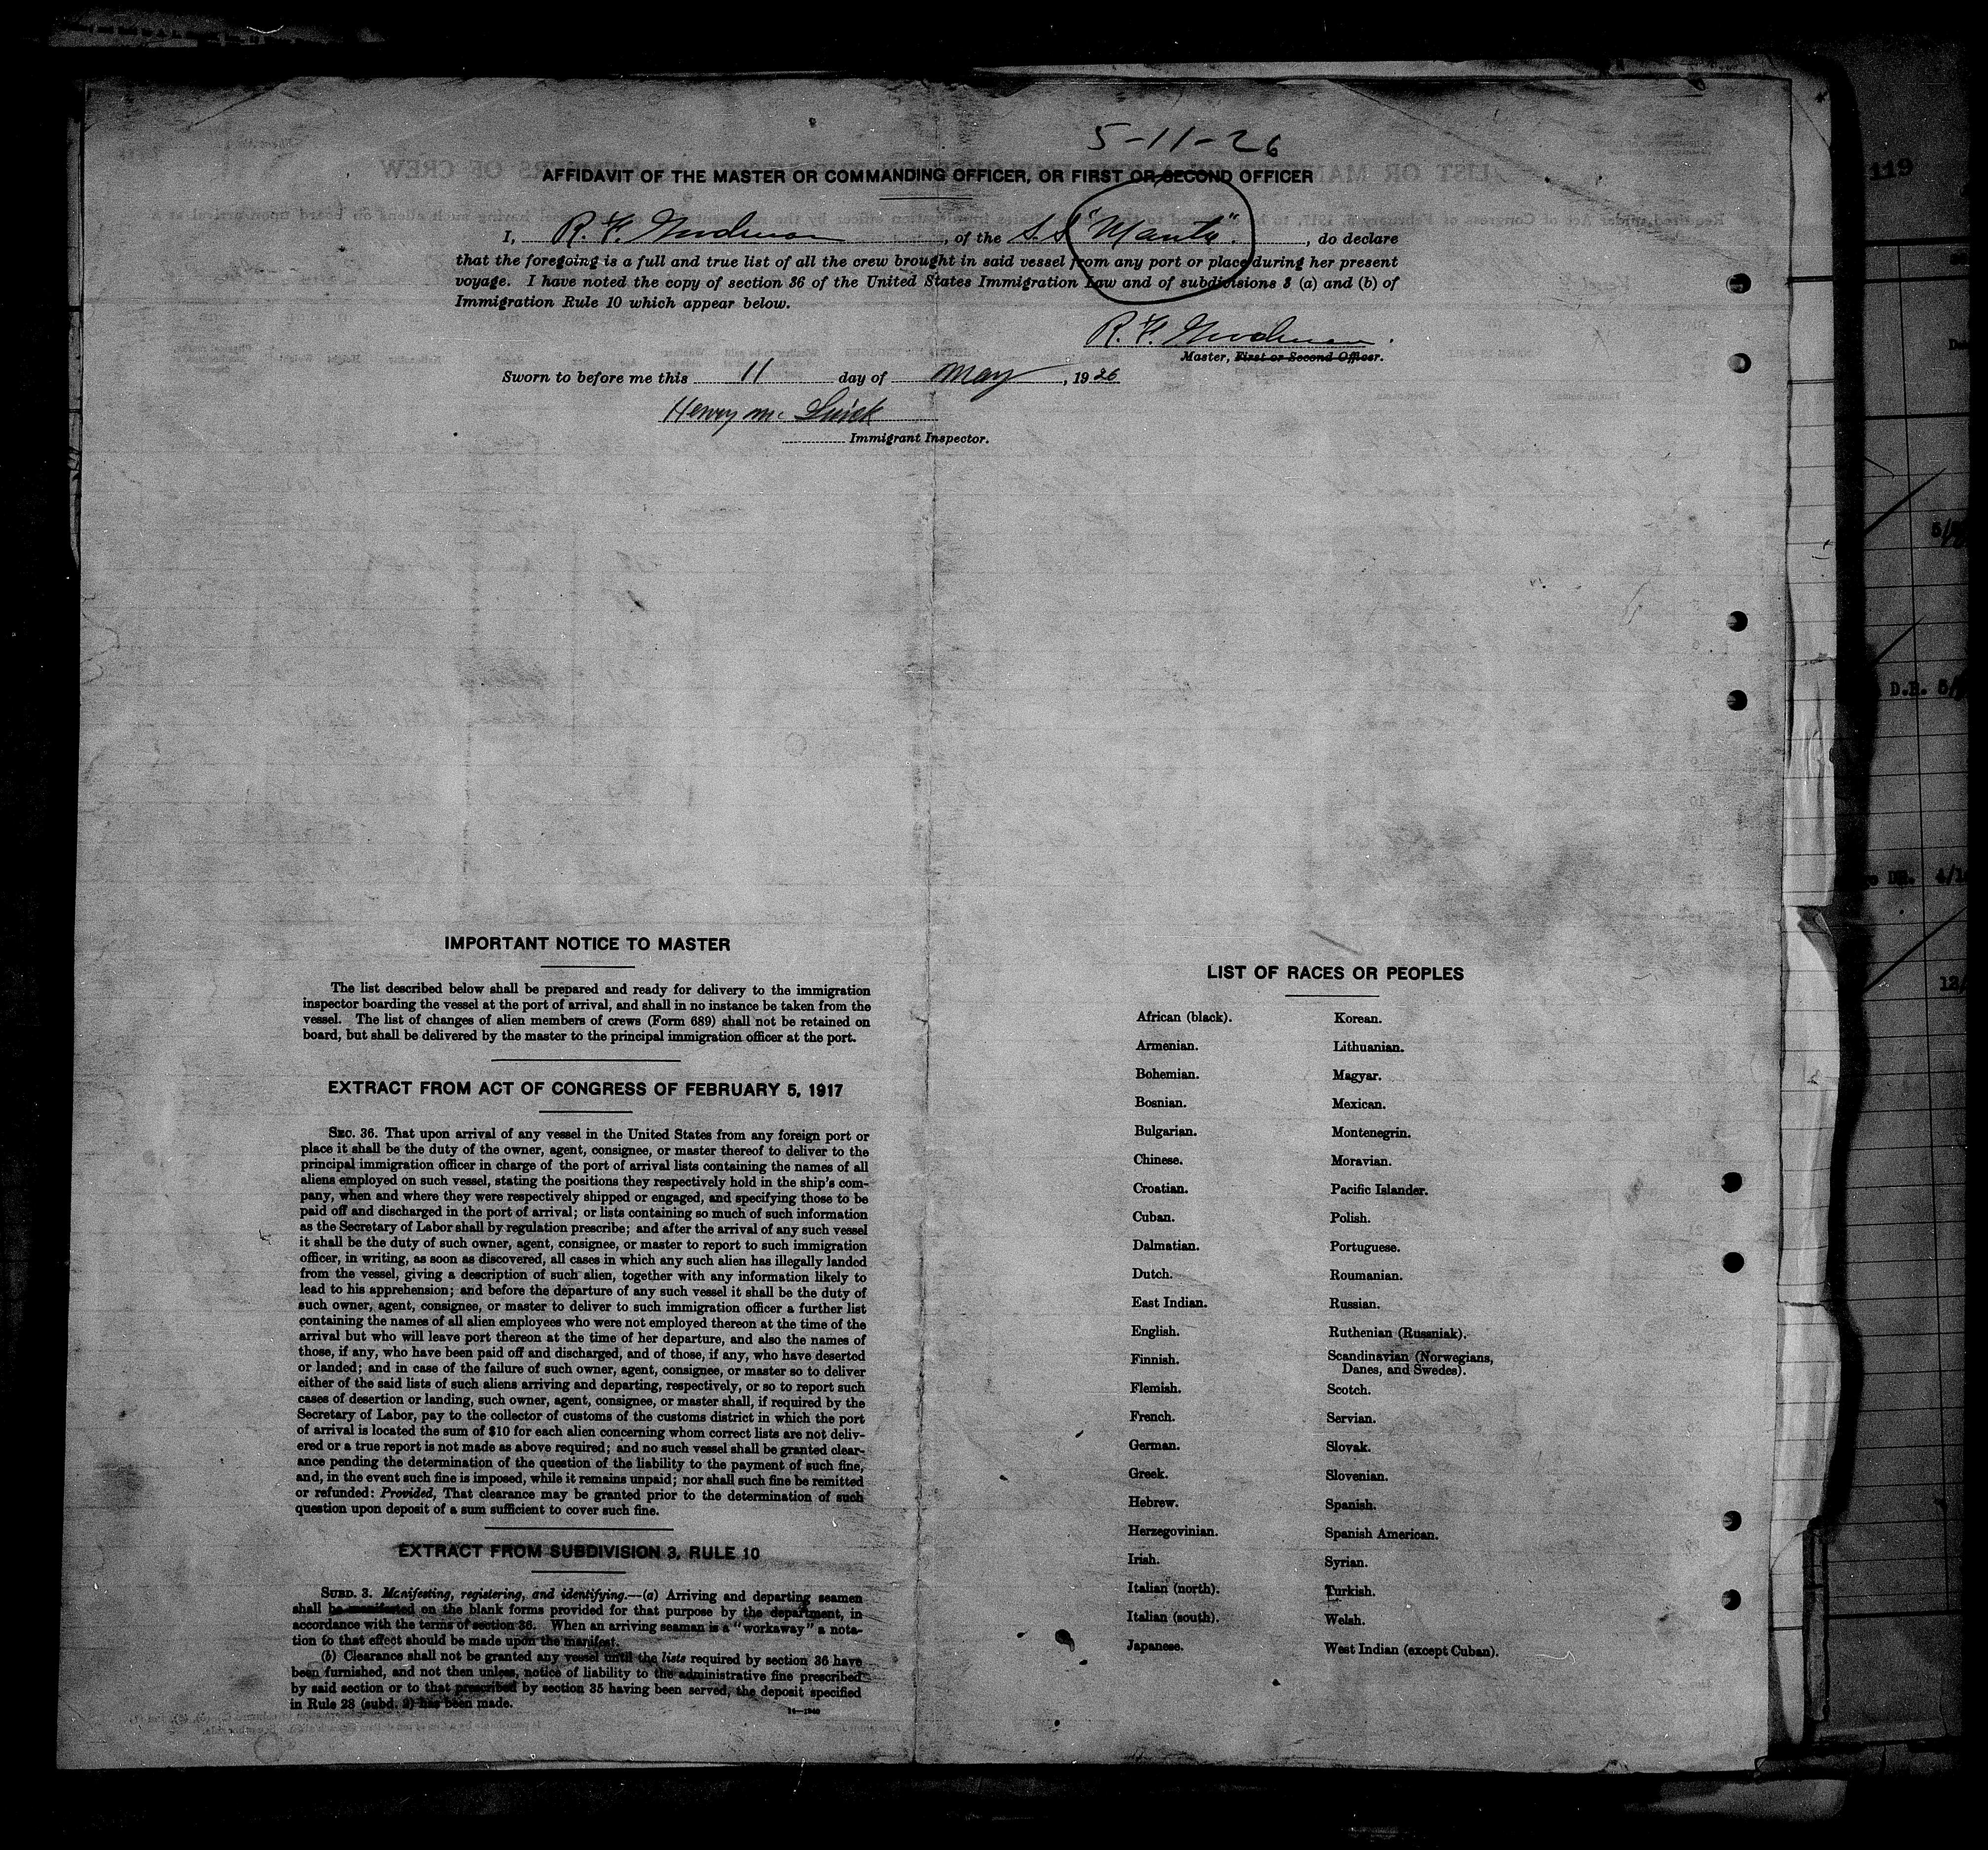 5-11-26
AFFIDAVIT OF THE MASTER OR COMMANDING OFFICER, OR FIRST OR SECOND OFFICER
I, R. F. , of the S.S. "Manta". , do declare
that the foregoing is a full and true list of all the crew brought in said vessel from any port or place during her present
voyage. I have noted the copy of section 36 of the United States Immigration Law and of subdivisions 3 (a) and (b) of
Immigration Rule 10 which appear below.
R. F.
Master, First or Second Officer.
Sworn to before me this 11 day of May, 1926
Henry Mc
Immigrant Inspector.
IMPORTANT NOTICE TO MASTER
The list described below shall be prepared and ready for delivery to the immigration
inspector boarding the vessel at the port of arrival, and shall in no instance be taken from the
vessel. The list of changes of alien members of crews (Form 689) shall not be retained on
board, but shall be delivered by the master to the principal immigration officer at the port.
EXTRACT FROM ACT OF CONGRESS OF FEBRUARY 5, 1917
SEC. 36. That upon arrival of any vessel in the United States from any foreign port or
place it shall be the duty of the owner, agent, consignee, or master thereof to deliver to the
principal immigration officer in charge of the port of arrival lists containing the names of all
aliens employed on such vessel, stating the positions they respectively hold in the ship's com-
pany, when and where they were respectively shipped or engaged, and specifying those to be
paid off and discharged in the port of arrival; or lists containing so much of such information
as the Secretary of Labor shall by regulation prescribe; and after the arrival of any such vessel
it shall be the duty of such owner, agent, consignee, or master to report to such immigration
officer, in writing, as soon as discovered, all cases in which any such alien has illegally landed
from the vessel, giving a description of such alien, together with any information likely to
lead to his apprehension; and before the departure of any such vessel it shall be the duty of
such owner, agent, consignee, or master to deliver to such immigration officer a further list
containing the names of all alien employees who were not employed thereon at the time of the
arrival but who will leave port thereon at the time of her departure, and also the names of
those, if any, who have been paid off and discharged, and of those, if any, who have deserted
or landed; and in case of the failure of such owner, agent, consignee, or master so to deliver
either of the said lists of such aliens arriving and departing, respectively, or so to report such
cases of desertion or landing, such owner, agent, consignee, or master shall, if required by the
Secretary of Labor, pay to the collector of customs of the customs district in which the port
of arrival is located the sum of $10 for each alien concerning whom correct lists are not deliv-
ered or a true report is not made as above required; and no such vessel shall be granted clear-
ance pending the determination of the question of the liability to the payment of such fine,
and, in the event such fine is imposed, while it remains unpaid; nor shall such fine be remitted
or refunded: Provided, That clearance may be granted prior to the determination of such
question upon deposit of a sum sufficient to cover such fine.
EXTRACT FROM SUBDIVISION 3, RULE 10
SUBD. 3. Manifesting, registering, and identifying.—(a) Arriving and departing seamen
shall be manifested on the blank forms provided for that purpose by the department, in
accordance with the terms of section 36. When an arriving seaman is a "workaway" a nota-
tion to that effect should be made upon the manifest.
(b) Clearance shall not be granted any vessel until the lists required by section 36 have
been furnished, and not then unless, notice of liability to the administrative fine prescribed
by said section or to that prescribed by section 35 having been served, the deposit specified
in Rule 28 (subd. 2) has been made.
LIST OF RACES OR PEOPLES
African (black).
Armenian.
Bohemian.
Bosnian.
Bulgarian.
Chinese.
Croatian.
Cuban.
Dalmatian.
Dutch.
East Indian.
English.
Finnish.
Flemish.
French.
German.
Greek.
Hebrew.
Herzegovinian.
Irish.
Italian (north).
Italian (south).
Japanese.
Korean.
Lithuanian.
Magyar.
Mexican.
Montenegrin.
Moravian.
Pacific Islander.
Polish.
Portuguese.
Roumanian.
Russian.
Ruthenian (Russniak).
Scandinavian (Norwegians,
Danes, and Swedes).
Scotch.
Servian.
Slovak.
Slovenian.
Spanish.
Spanish American.
Syrian.
Turkish.
Welsh.
West Indian (except Cuban).
119
D.R. 5/
DR. 4/1